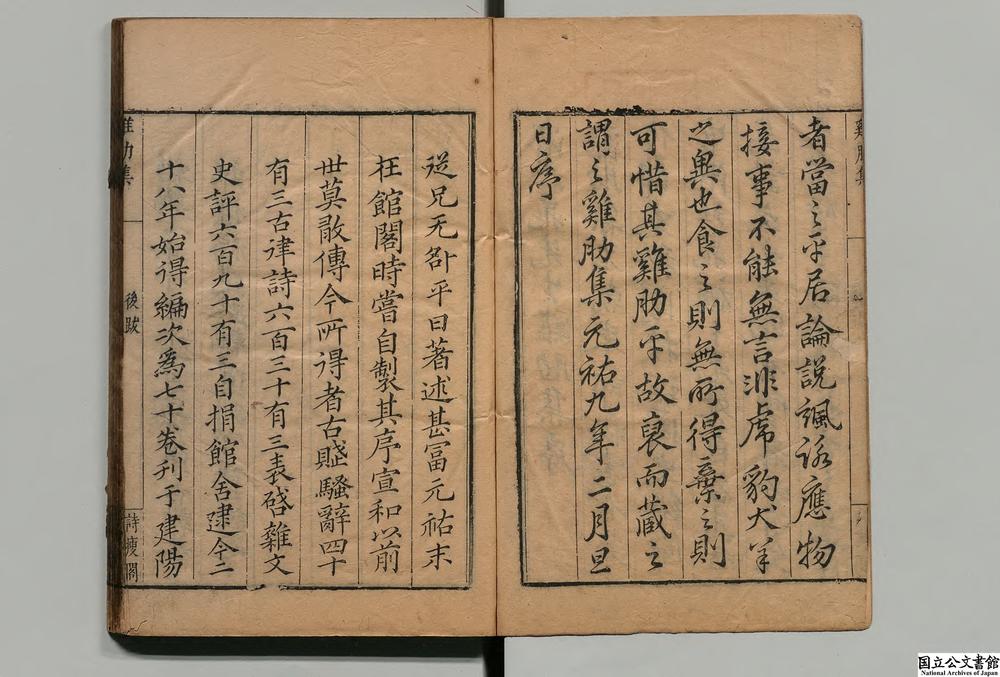 者當之乎居論說諷詠應物
接事不能無言非虎豹犬羊
之異也食之則無所得棄之則
可惜其雞肋乎故裒而藏之
謂之雞肋集元祐九年二月旦
日序
從兄无咎平日著述甚富元祐末
在館閣時嘗自製其序宣和以前
世莫敢傳今所得者古賦騷辭四十
有三古律詩六百三十有三表啓雜文
史評六百九十有三自捐館舍逮今二
十八年始得編次爲七十卷刊于建陽
後跋
詩瘦閣
国立公文書館
National Archives of Japan